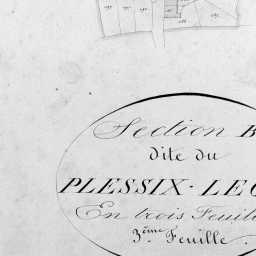 Section B
dite du
PLESSIX-LEG
En trois Feuill
3ème Feuille.